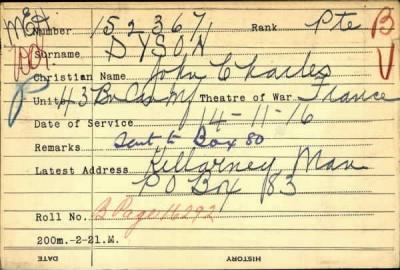 Number 152367 Rank Pte B
Surname DYSON V
Christian Name John Charles
Unit 43 Bn Can Inf Theatre of War France
Date of Service 14-11-16
Remarks Sent to Box 80
Latest Address Killarney Man
P O Box 183
Roll No. B Page 16292
200m.-2-21.M. HISTORY